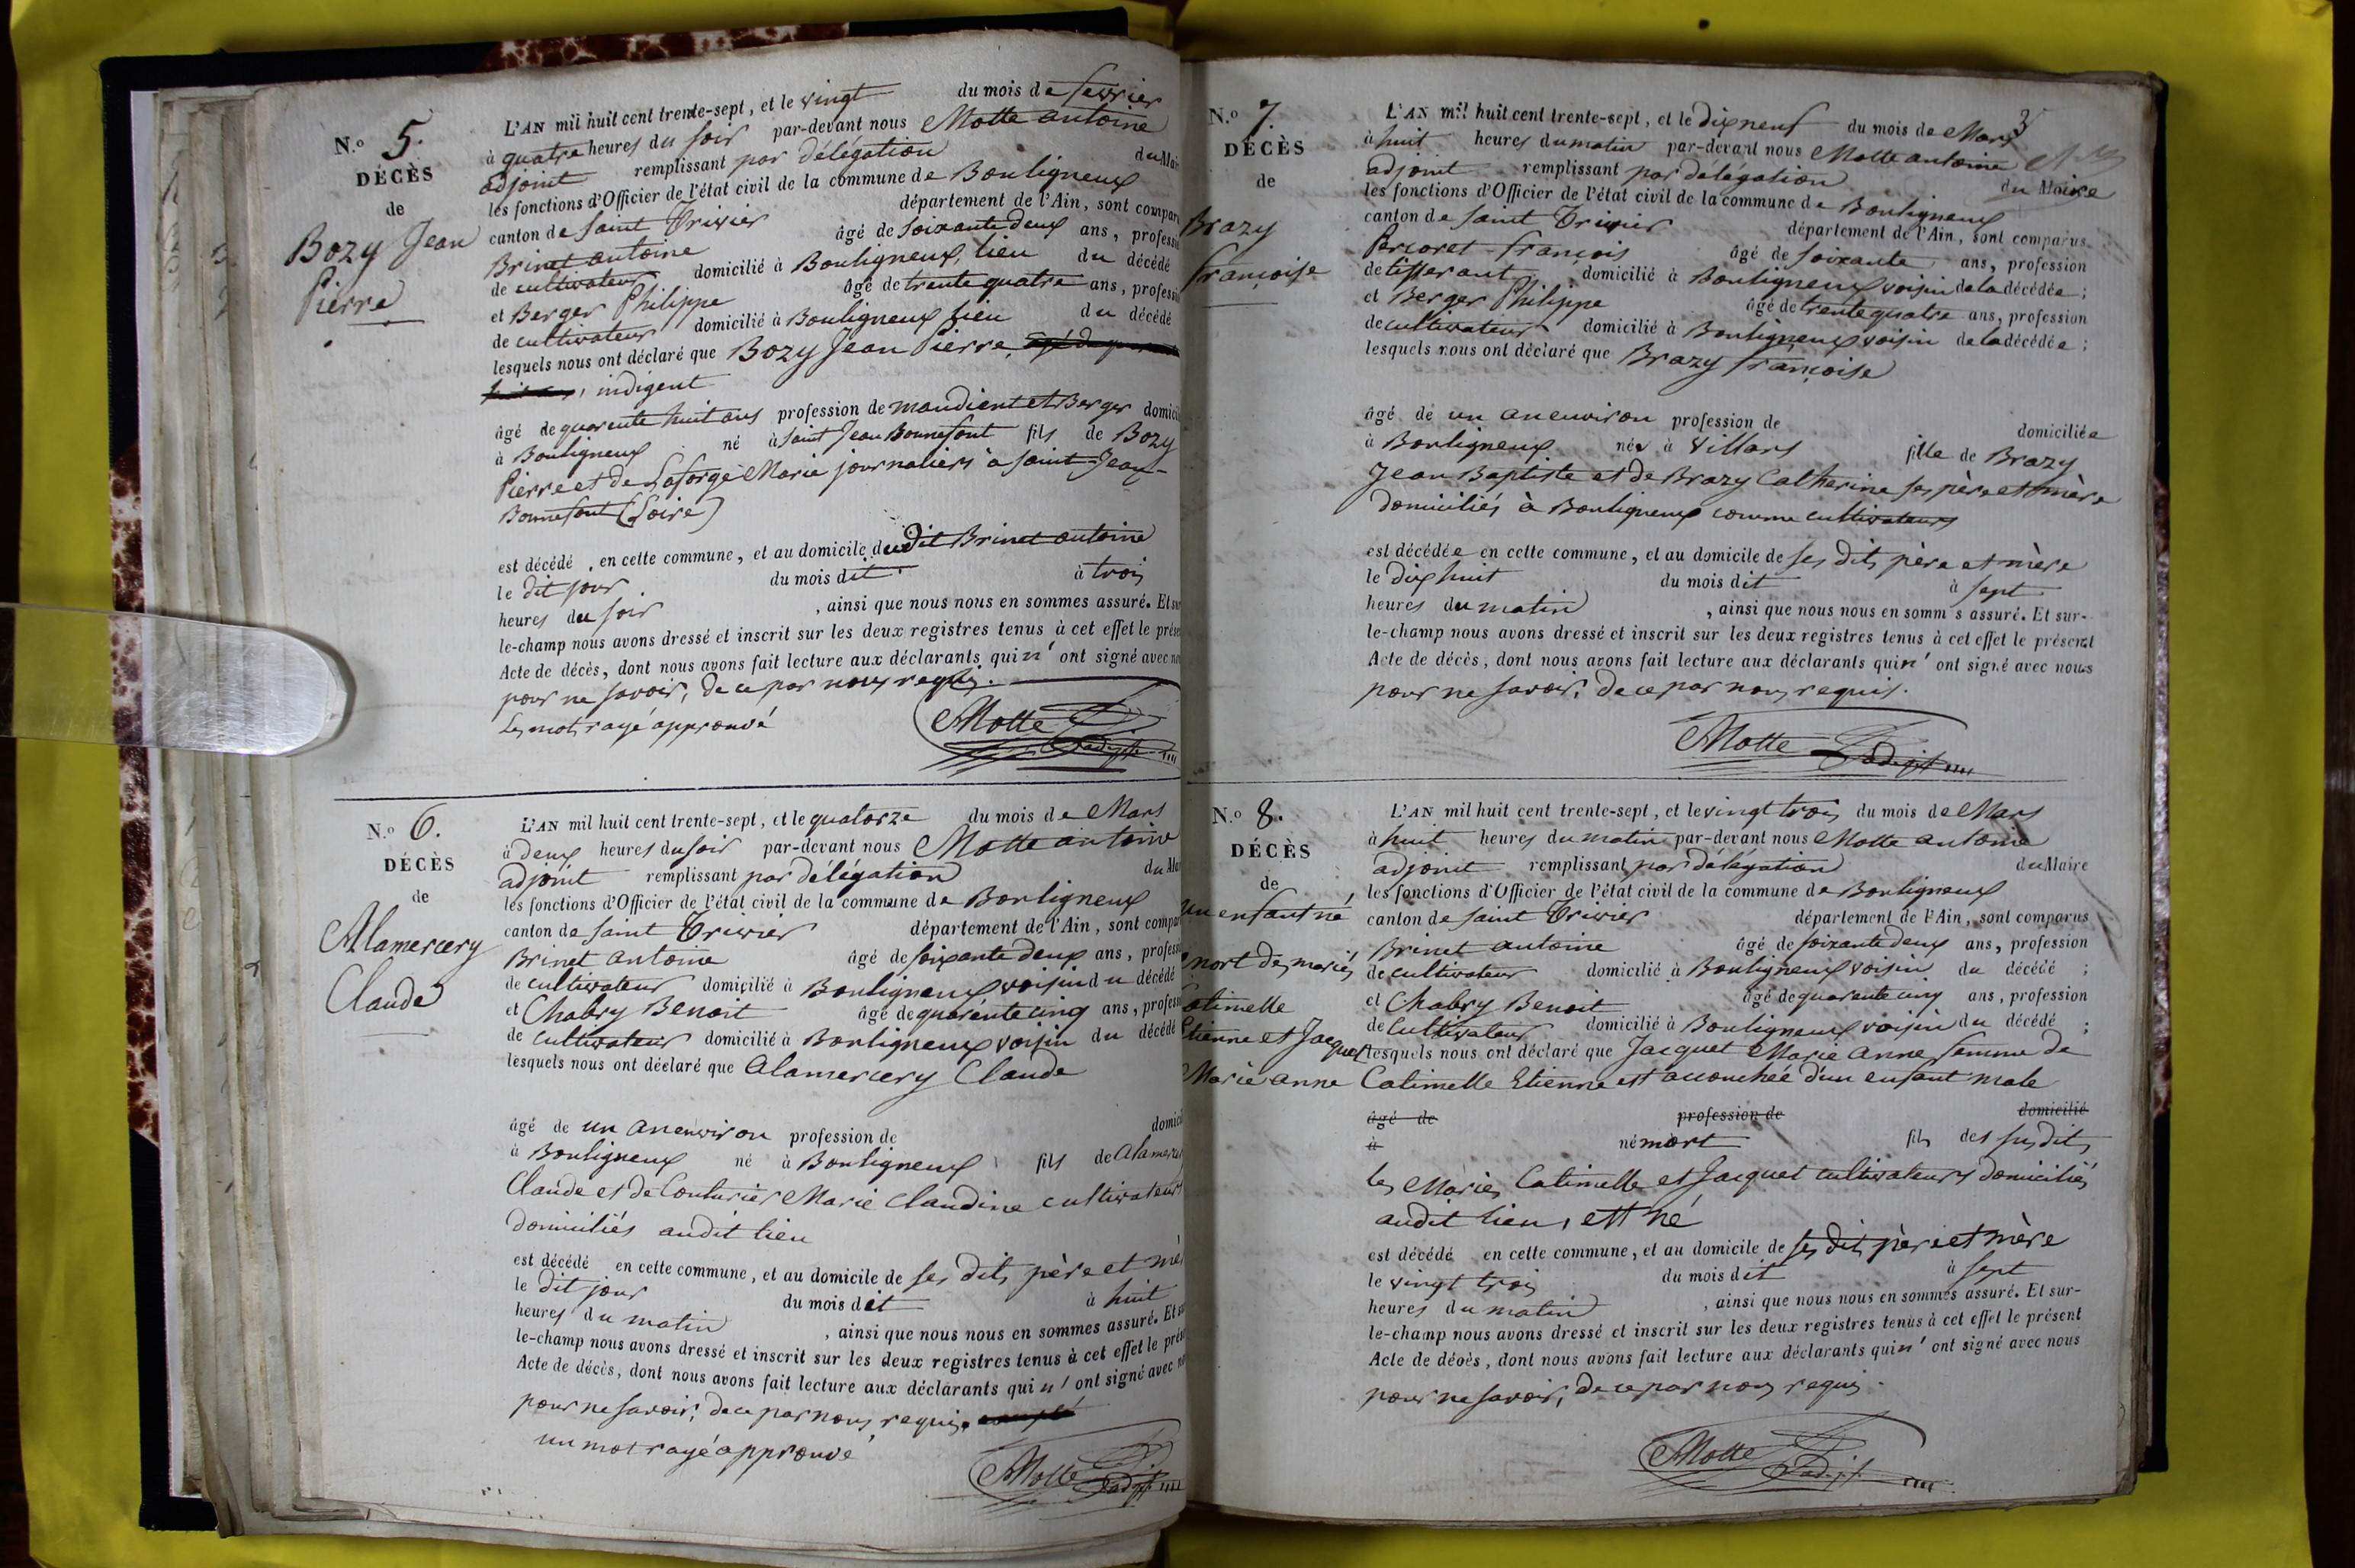 N.o 5.
DÉCÈS
de
Bozy Jean
Pierre
L'AN mil huit cent trente-sept, et le vingt du mois de fevrier
à quatre heures du soir par-devant nous Motte antoine
adjoint remplissant par délégation du Mai
les fonctions d'Officier de l'état civil de la commune de Bouligneux
canton de saint Trivier département de l'Ain, sont compar
Brinet antoine âgé de soixante deux ans, professi
de cultivateur domicilié à Bouligneux, lieu du décédé
et Berger Philippe âgé de trente quatre ans, professi
de cultivateur domicilié à Bouligneux lieu du décédé
lesquels nous ont déclaré que Bozy Jean Pierre,
indigent
âgé de quarente huit ans profession de mandient et Berger domici
à Bouligneux né à saint Jean Bonnefont fils de Bozy
Pierre et de Laforge Marie journaliers à saint Jean-
Bonnefont (Loire)
est décédé, en cette commune, et au domicile du dit Brinet antoine
le dit jour du mois dit à trois
heures du soir, ainsi que nous nous en sommes assuré. Et su
le-champ nous avons dressé et inscrit sur les deux registres tenus à cet effet le prése
Acte de décès, dont nous avons fait lecture aux déclarants qui n'ont signé avec no
pour ne savoir, de ce par nous requis.
Les mots rayé approuvé
Motte
N.o 6.
DÉCÈS
de
Alamercery
Claude
L'AN mil huit cent trente-sept, et le quatorze du mois de Mars
à deux heures du soir par-devant nous Motte antoine
adjoint remplissant par délégation du Mai
les fonctions d'Officier de l'état civil de la commune de Bouligneux
canton de saint Trivier département de l'Ain, sont compar
Brinet antoine âgé de soixante deux ans, professi
de cultivateur domicilié à Bouligneux voisin du décédé
et Chabry Benoit âgé de quarénte cinq ans, professi
de cultivateur domicilié à Bouligneux voisin du décédé
lesquels nous ont déclaré que Alamercery Claude
âgé de un an environ profession de domici
à Bouligneux né à Bouligneux fils de Alamerce
Claude et de Couturier Marie Claudine cultivateurs
domiciliés audit lieu
est décédé en cette commune, et au domicile de ses dits père et mè
le dit jour du mois dit à huit
heures du matin, ainsi que nous nous en sommes assuré. Et su
le-champ nous avons dressé et inscrit sur les deux registres tenus à cet effet le prése
Acte de décès, dont nous avons fait lecture aux déclarants qui n'ont signé avec no
pour ne savoir, de ce par nous requis.
un mot rayé approuvé
Motte
3
N.o 7.
DÉCÈS
de
Brazy
françoise
L'AN mil huit cent trente-sept, et le dix neuf du mois de Mars
à huit heures du matin par-devant nous Motte antoine
adjoint remplissant par délégation du Maire
les fonctions d'Officier de l'état civil de la commune de Bouligneux
canton de saint Trivier département de l'Ain, sont comparus
Porcoret françois âgé de soixante ans, profession
de tisserant domicilié à Bouligneux voisin de la décédée;
et Berger Philippe âgé de trente quatre ans, profession
de cultivateur domicilié à Bouligneux voisin de la décédée;
lesquels nous ont déclaré que Brazy françoise
âgé de un an environ profession de domiciliée
à Bouligneux née à Villars fille de Brazy
Jean Baptiste et de Brazy Catherine ses père et mère
domiciliés à Bouligneux comme cultivateurs
est décédée en cette commune, et au domicile de ses dits père et mère
le dix huit du mois dit à sept
heures du matin, ainsi que nous nous en somm s assuré. Et sur-
le-champ nous avons dressé et inscrit sur les deux registres tenus à cet effet le présent
Acte de décès, dont nous avons fait lecture aux déclarants qui n'ont signé avec nous
pour ne savoir, de ce par nous requis.
Motte
N.o 8.
DÉCÈS
de
un enfant né
mort des mariés
Catimelle
Etienne et Jacquet
Marie anne
L'AN mil huit cent trente-sept, et le vingt trois du mois de Mars
à huit heures du matin par-devant nous Motte antoine
adjoint remplissant par délégation du Maire
les fonctions d'Officier de l'état civil de la commune de Bouligneux
canton de saint Trivier département de l'Ain, sont comparus
Brinet antoine âgé de soixante deux ans, profession
de cultivateur domicilié à Bouligneux voisin du décédé;
et Chabry Benoit âgé de quarante cinq ans, profession
de cultivateur domicilié à Bouligneux voisin du décédé;
lesquels nous ont déclaré que Jacquet Marie Anne femme de
Catimelle Etienne est accouchée d'un enfant male
âgé de profession de domicilié
à né mort fils des susdits
les Mariés Catimelle et Jacquet cultivateurs domiciliés
audit lieu, est né
est décédé en cette commune, et au domicile de ses dits père et mère
le vingt trois du mois dit à sept
heures du matin, ainsi que nous nous en sommes assuré. Et sur-
le-champ nous avons dressé et inscrit sur les deux registres tenus à cet effet le présent
Acte de décès, dont nous avons fait lecture aux déclarants qui n'ont signé avec nous
pour ne savoir, de ce par nous requis.
Motte